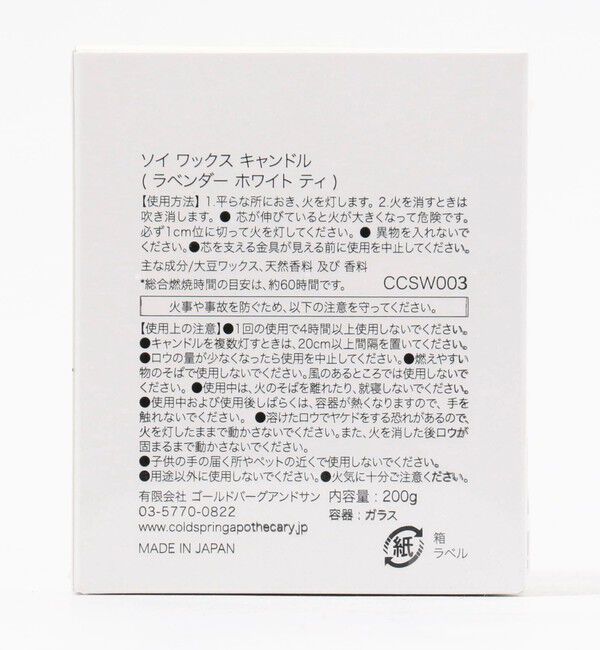 ソイ ワックス キャンドル
( ラベンダー ホワイト ティ )
【使用方法】1.平らな所におき、火を灯します。2.火を消すときは
吹き消します。● 芯が伸びていると火が大きくなって危険です。
必ず1cm位に切って火を灯してください。● 異物を入れないで
ください。●芯を支える金具が見える前に使用を中止してください。
主な成分/大豆ワックス、天然香料 及び 香料
*総合燃焼時間の目安は、約60時間です。 CCSW003
火事や事故を防ぐため、以下の注意を守ってください。
【使用上の注意】●1回の使用で4時間以上使用しないでください。
●キャンドルを複数灯すときは、20cm以上間隔を置いてください。
●ロウの量が少なくなったら使用を中止してください。●燃えやすい
物のそばで使用しないでください。風のあるところでは使用しないで
ください。●使用中は、火のそばを離れたり、就寝しないでください。
●使用中および使用後しばらくは、容器が熱くなりますので、手を
触れないでください。 ●溶けたロウでヤケドをする恐れがあるので、
火を灯したままで動かさないでください。また、火を消した後ロウが
固まるまで動かさないでください。
●子供の手の届く所やペットの近くで使用しないでください。
●用途以外に使用しないでください。●火気に十分ご注意ください。
有限会社 ゴールドバーグアンドサン 内容量：200g
03-5770-0822 容器：ガラス
www.coldspringapothecary.jp
MADE IN JAPAN
紙 箱
ラベル